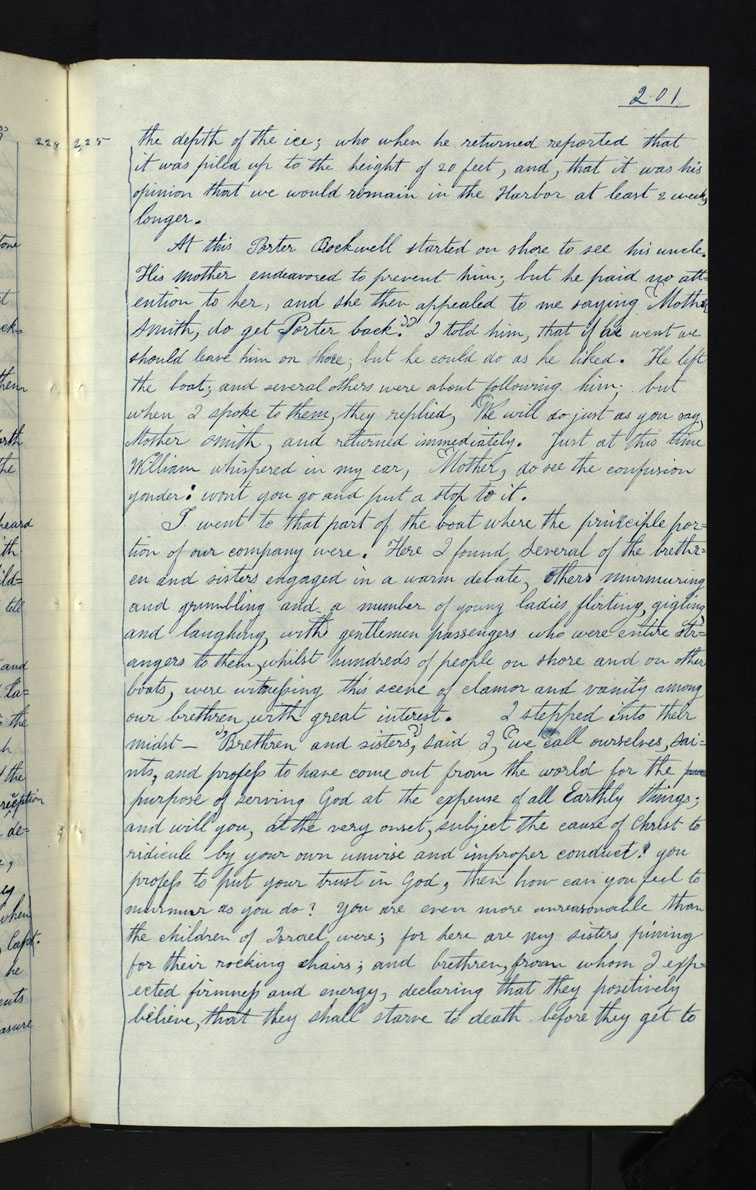 201
224 225
the depth of the ice; who when he returned reported that
it was piled up to the height of 20 feet, and, that it was his
opinion that we would remain in the Harbor at least 2 weeks
longer.
At this Porter Rockwell started on shore to see his uncle.
His mother endeavored to prevent him; but he paid no att=
ention to her, and she then appealed to me saying "Mother
Smith, do get Porter back." I told him, that if he went we
should leave him on shore; but he could do as he liked. He left
the boat; and several others were about following him; but
when I spoke to them, they replied, "We will do just as you say,
Mother Smith, and returned immediately. Just at this time
William whispered in my ear, Mother, do see the confusion
yonder: wont you go and put a stop to it.
I went to that part of the boat where the principle por=
tion of our company were. Here I found several of the brethr=
en and sisters engaged in a warm debate, others murmuring
and grumbling and a number of young ladies flirting, gigling
and laughing, with gentlemen passengers who were entire str=
angers to them, whilst hundreds of people on shore and on other
boats, were witnessing this scene of clamor and vanity among
our brethren, with great interest. I stepped into their
midst— "Brethren and sisters", said I, "we call ourselves, Sai=
nts, and profess to have come out from the world for the
purpose of serving God at the expense of all Earthly things;
and will you, at the very onset, subject the cause of Christ to
ridicule by your own unwise and improper conduct? you
profess to put your trust in God, then how can you feel to
murmur as you do? You are even more unreasonable than
the children of Israel were; for here are my sisters pining
for their rocking chairs; and brethren, from whom I exp=
ected firmness and energy, declaring that they positively
believe, that they shall starve to death before they get to